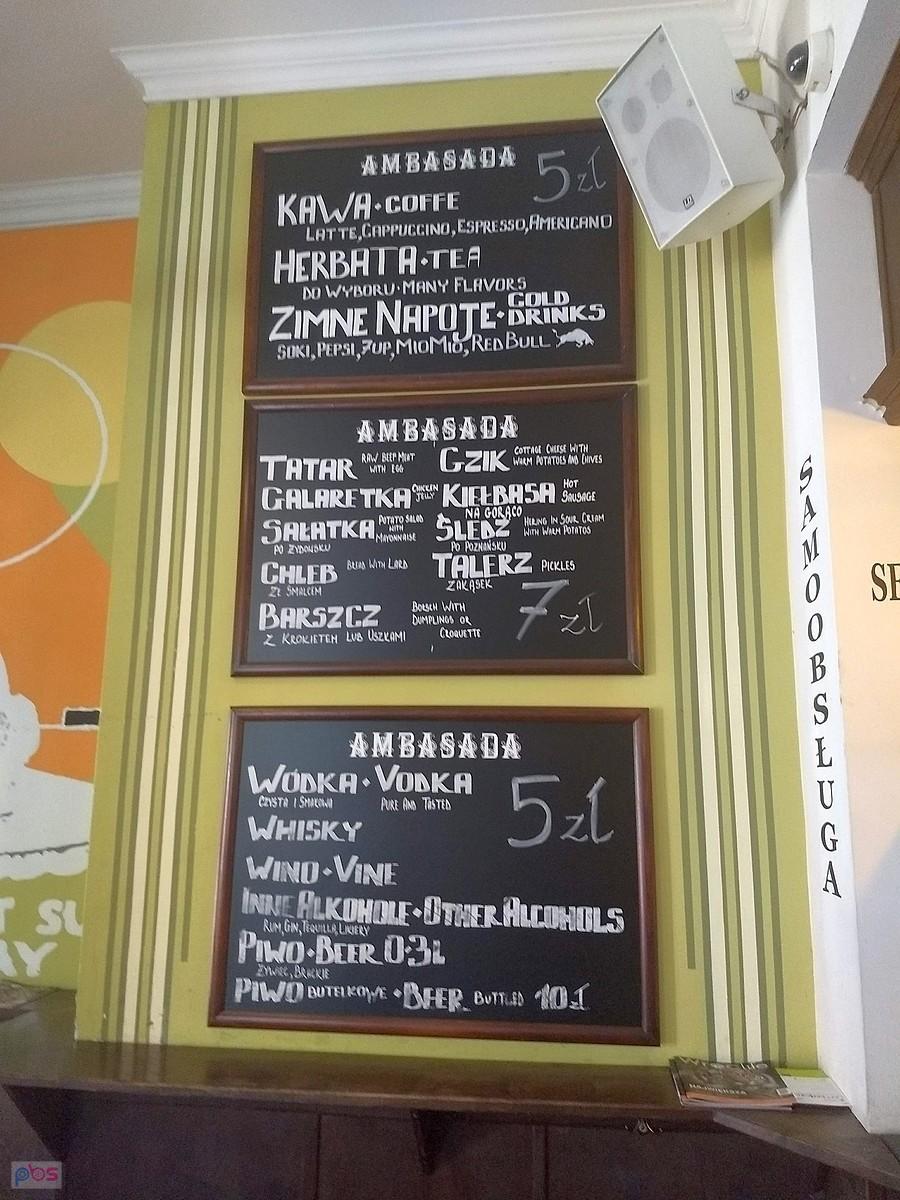 AMBASADA
5zł
KAWA·COFFE
LATTE,CAPPUCCINO,ESPRESSO,AMERICANO
HERBATA·TEA
DO WYBORU·MANY FLAVORS
ZIMNE NAPOJE·COLD DRINKS
SOKI,PEPSI,7UP,MIOMIO,REDBULL
AMBASADA
TATAR RAW BEEF MEAT WITH EGG
GZIK COTTAGE CHEESE WITH WARM POTATOES AND CHIVES
GALARETKA CHICKEN JELLY
KIEŁBASA HOT SAUSAGE
NA GORĄCO
SAŁATKA POTATO SALAD WITH MAYONNAISE
PO ŻYDOWSKU
ŚLEDŹ HERING IN SOUR CREAM WITH WARM POTATOS
PO POZNAŃSKU
CHLEB BREAD WITH LARD
ZE SMALCEM
TALERZ PICKLES
ZAKĄSEK
BARSZCZ BORSCH WITH DUMPLINGS OR CROQUETTE
Z KROKIETEM LUB USZKAMI
7 zł
AMBASADA
WÓDKA·VODKA
CZYSTA I SMAKOWA PURE AND TASTED
5zł
WHISKY
WINO·VINE
INNE ALKOHOLE·OTHER ALCOHOLS
RUM,GIN,TEQUILLA,LIKIERY
PIWO·BEER 0·3L
ŻYWIEC,BRACKIE
PIWO BUTELKOWE·BEER BUTTLED 10zł
SAMOOBSŁUGA
SE
T SU
AY
NAJWIĘKSZA
pbs